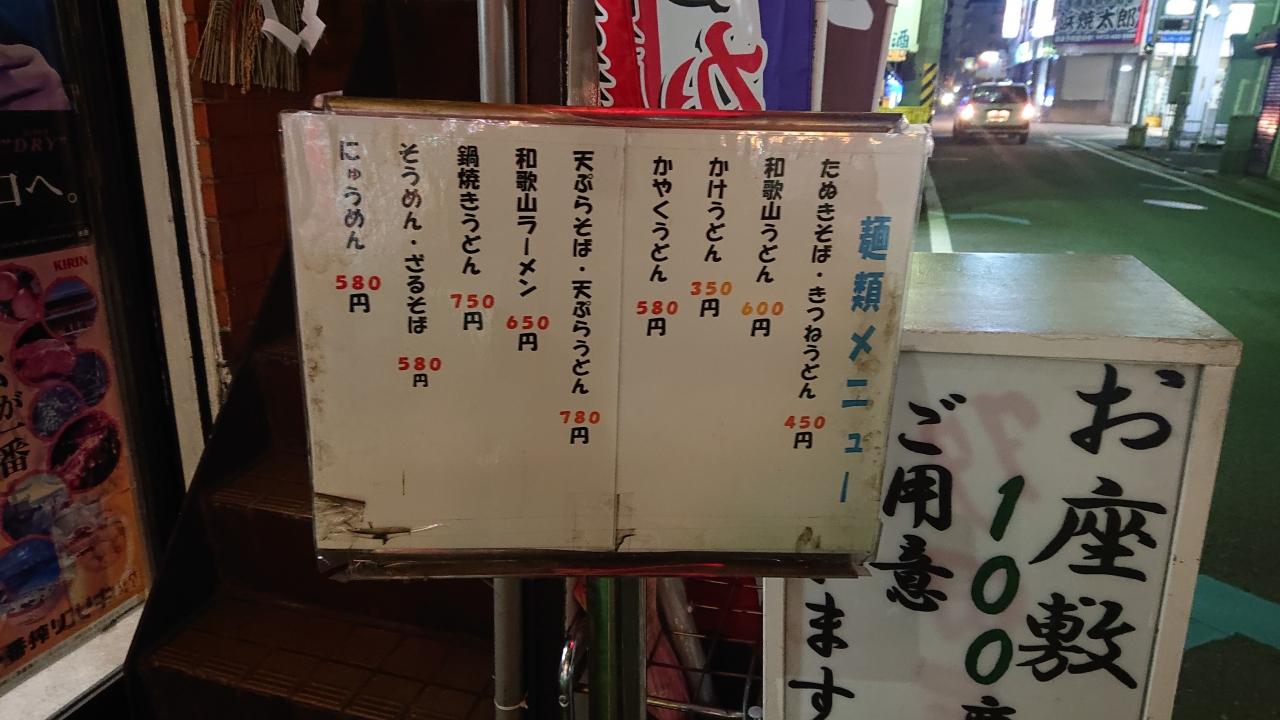 麺類メニュー
たぬきそば・きつねうどん 450円
和歌山うどん 600円
かけうどん 350円
かやくうどん 580円
天ぷらそば・天ぷらうどん 780円
和歌山ラーメン 650円
鍋焼きうどん 750円
そうめん・ざるそば 580円
にゅうめん 580円
お座敷
100席
ご用意
ます
KIRIN
"DRY"
口へ。
が一番
一番搾り
焼太郎
酒